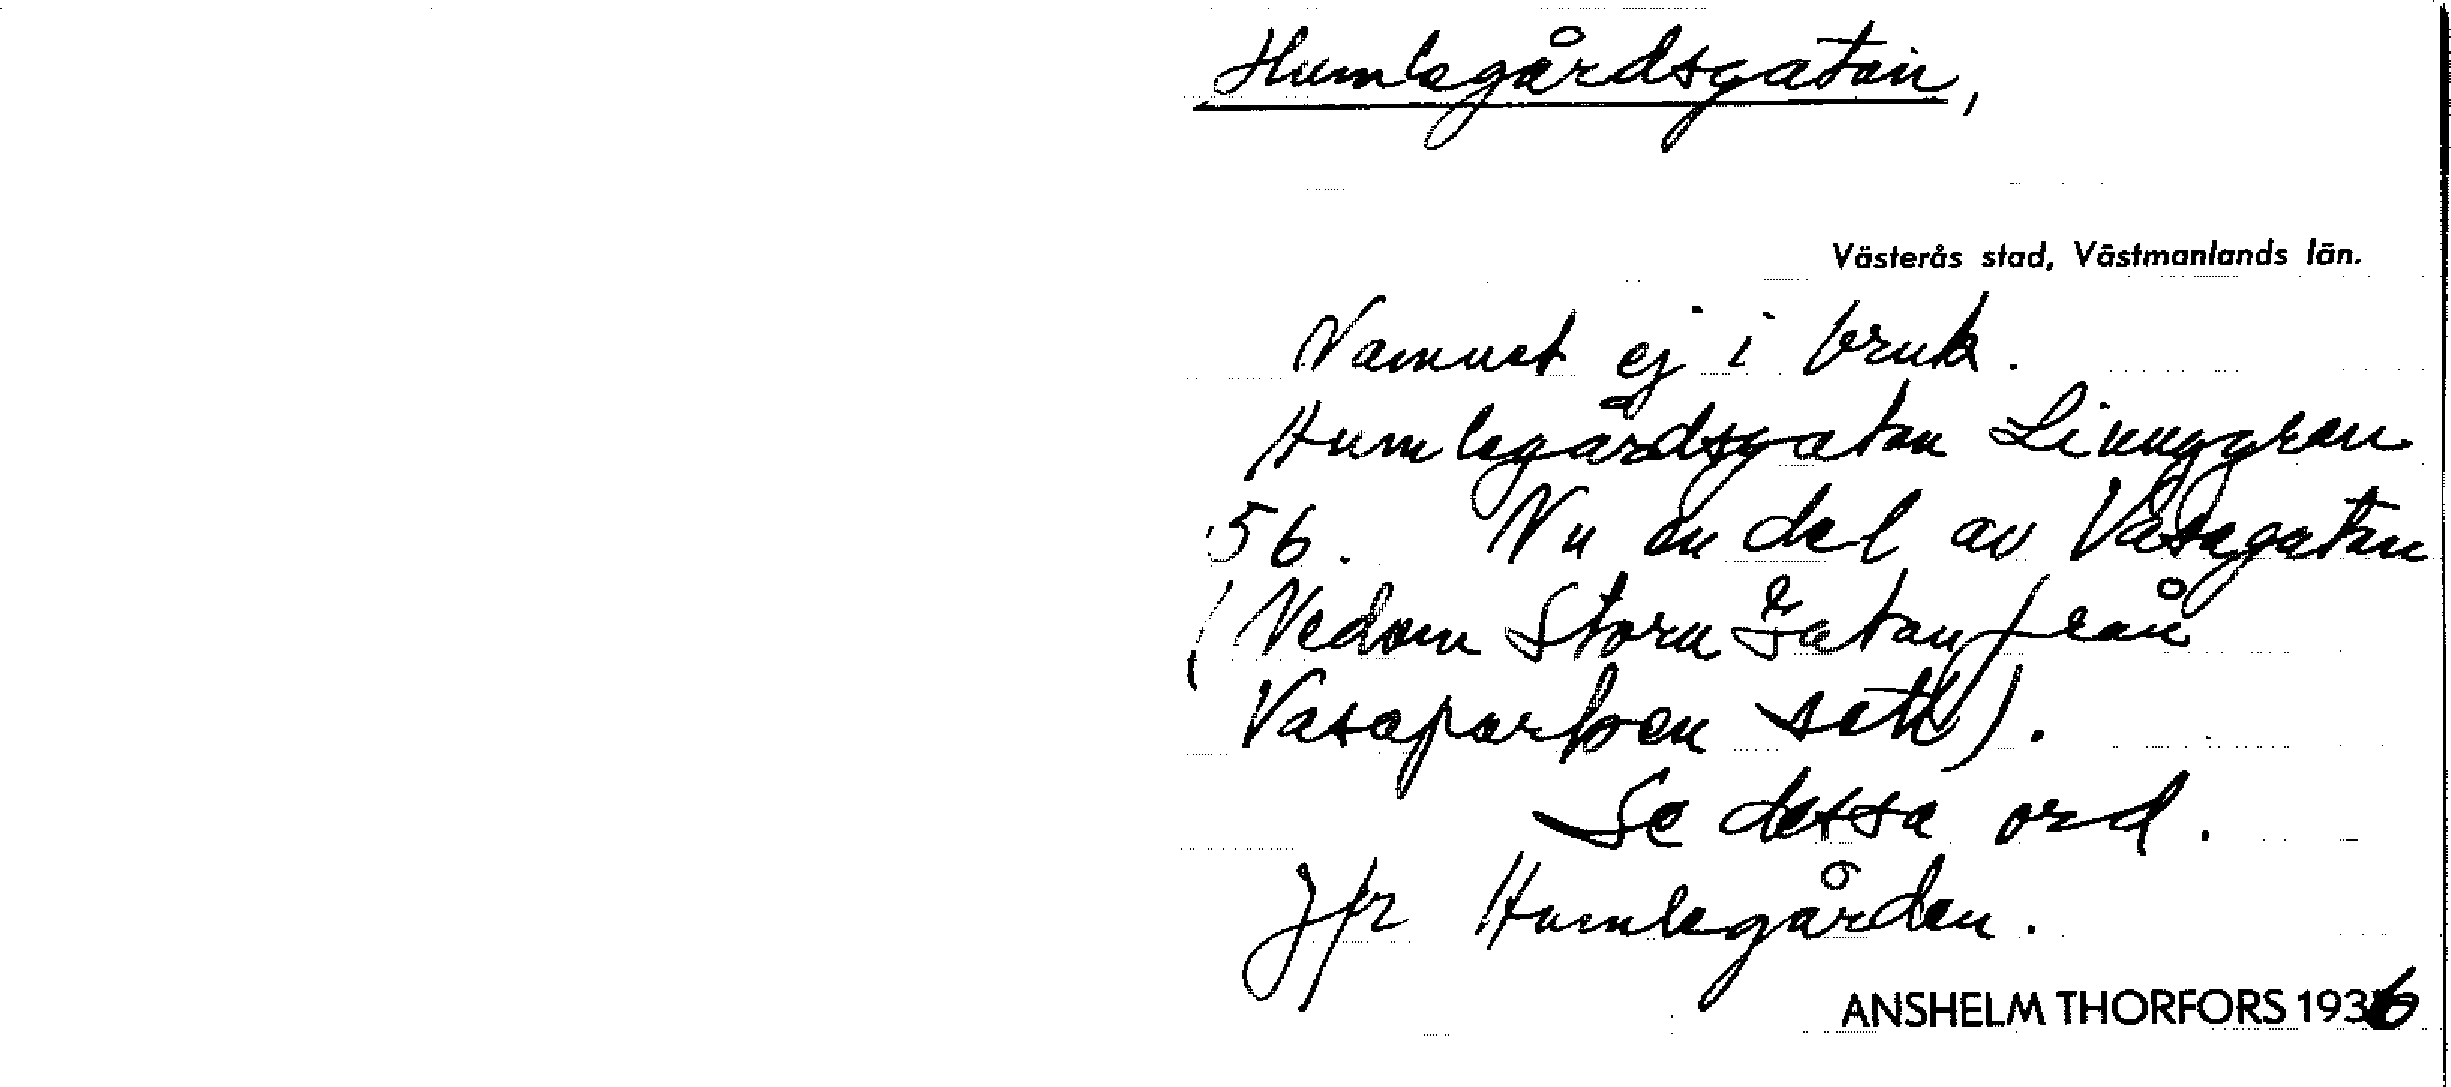 Humlegårdsgatan,
Västerås stad, Västmanlands län.
Namnet ej i bruk.
Humlegårdsgatan Linnggren
56. Nu en del av Vasagatan
(Nedom Stora Gatan från
Vasaparken sett).
Se dessa ord.
Jfr Humlegården.
ANSHELM THORFORS 1936